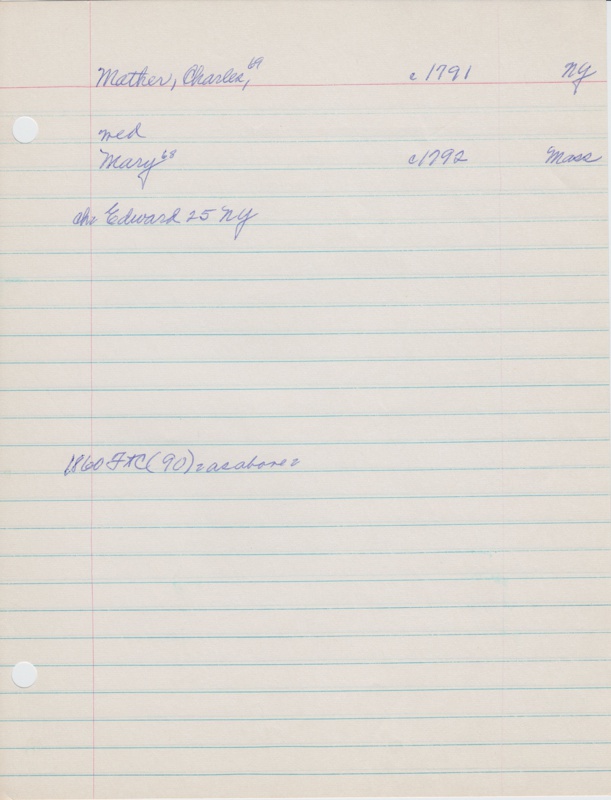 Mather, Charles, 69 c1791 NY
med
Mary 68 c1792 Mass
ch: Edward 25 NY
1860 (90) = as above =